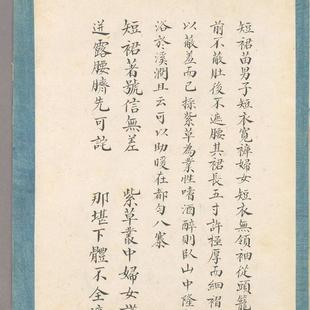 短裙苗男子短衣寬褲婦女短衣無領袖從頭籠
前不蔽肚後不遮腰其裙長五寸許極厚而細褶
以蔽羞而已採紫草為業性嗜酒醉則臥山中隆
浴於溪澗且云可以助暖在都勻八寨
短裙著號信無差 紫草叢中婦女
迸露腰臍先可詫 那堪下體不全